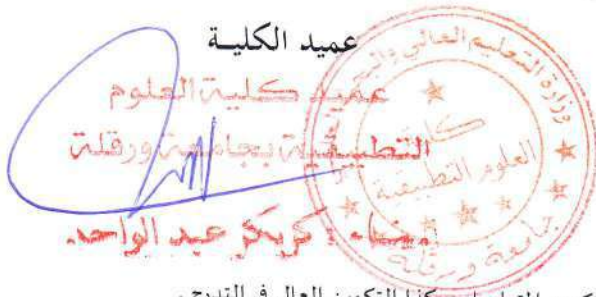 عميد الكلية
عميد كلية العلوم
التطبيقية بجامعة ورقلة
إمضاء : كريكر عبد الواحد
وزارة التعليم العالي والبحث
كلية
العلوم التطبيقية
جامعة ورقلة
التكوين العالي في التدرج